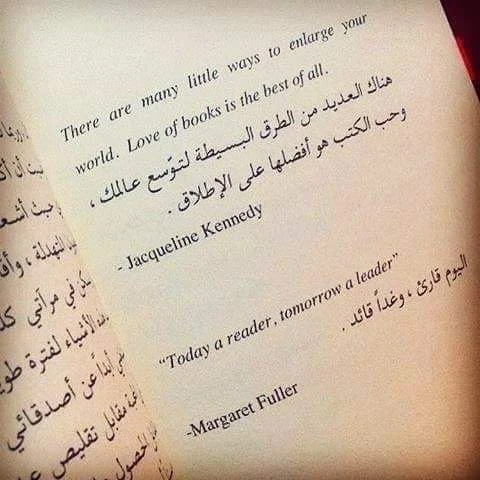 There are many little ways to enlarge your
world. Love of books is the best of all.
هناك العديد من الطرق البسيطة لتوّسع عالمك ،
وحب الكتب هو أفضلها على الإطلاق .
- Jacqueline Kennedy
“Today a reader, tomorrow a leader”
اليوم قارئ ، وغداً قائد .
-Margaret Fuller
حيث أشع
التهدلة ، وأق
في مرآتي كل
الأشياء لفترة طو
أبداً عن أصدقائي
مقابل تقليص
الحصول